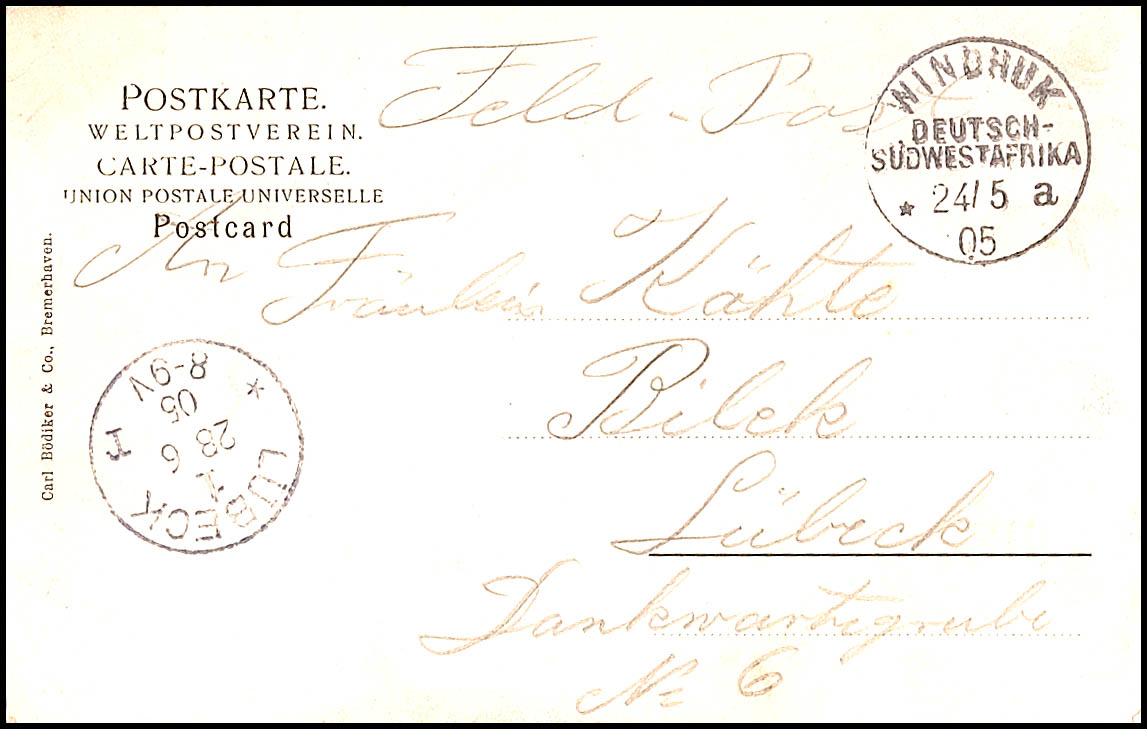 Feld-Post
POSTKARTE.
WELTPOSTVEREIN.
CARTE-POSTALE.
UNION POSTALE UNIVERSELLE
Postcard
WINDHUK
DEUTSCH-
SÜDWESTAFRIKA
* 24/5 a
05
An
Fräulein Käthe
Bilck
Lübeck
Dankwartsgrube
No 6
Carl Bödiker & Co., Bremerhaven.
LÜBECK
1
28 6
05
8-9V
*